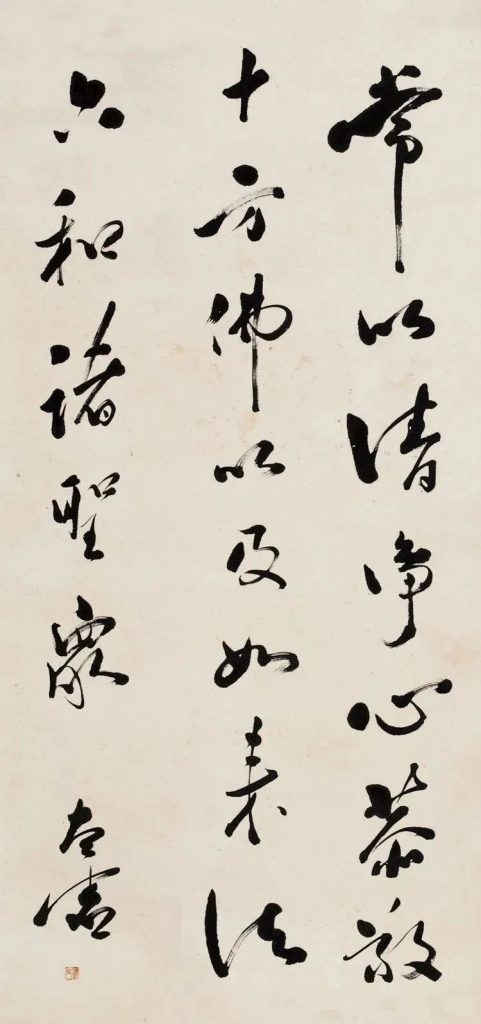 常以清淨心恭敬
十方佛以及如表法
六和諸聖眾
太虛